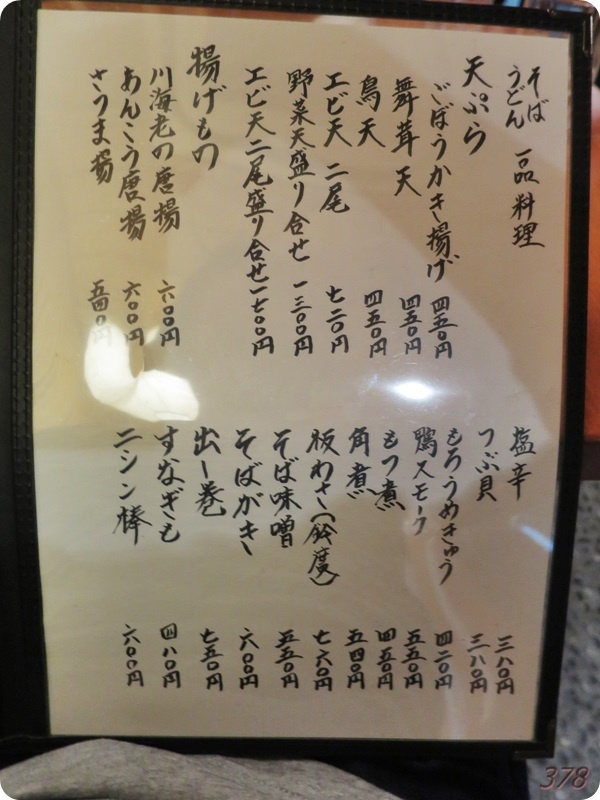 そば
うどん 一品料理
天ぷら
ごぼうかき揚げ 四五〇円
舞茸天 四五〇円
鳥天 四五〇円
エビ天二尾 七二〇円
野菜天盛り合せ 一三〇〇円
エビ天二尾盛り合せ 一七〇〇円
揚げもの
川海老の唐揚 六〇〇円
あんこう唐揚 六〇〇円
さつま揚 五四〇円
塩辛 三八〇円
つぶ貝 三八〇円
もろうめきゅう 四二〇円
鴨スモーク 五五〇円
もつ煮 四五〇円
角煮 五四〇円
板わさ(鈴廣) 七六〇円
そば味噌 五五〇円
そばがき 六〇〇円
出し巻 七五〇円
すなぎも 四八〇円
ニシン棒 六〇〇円
378